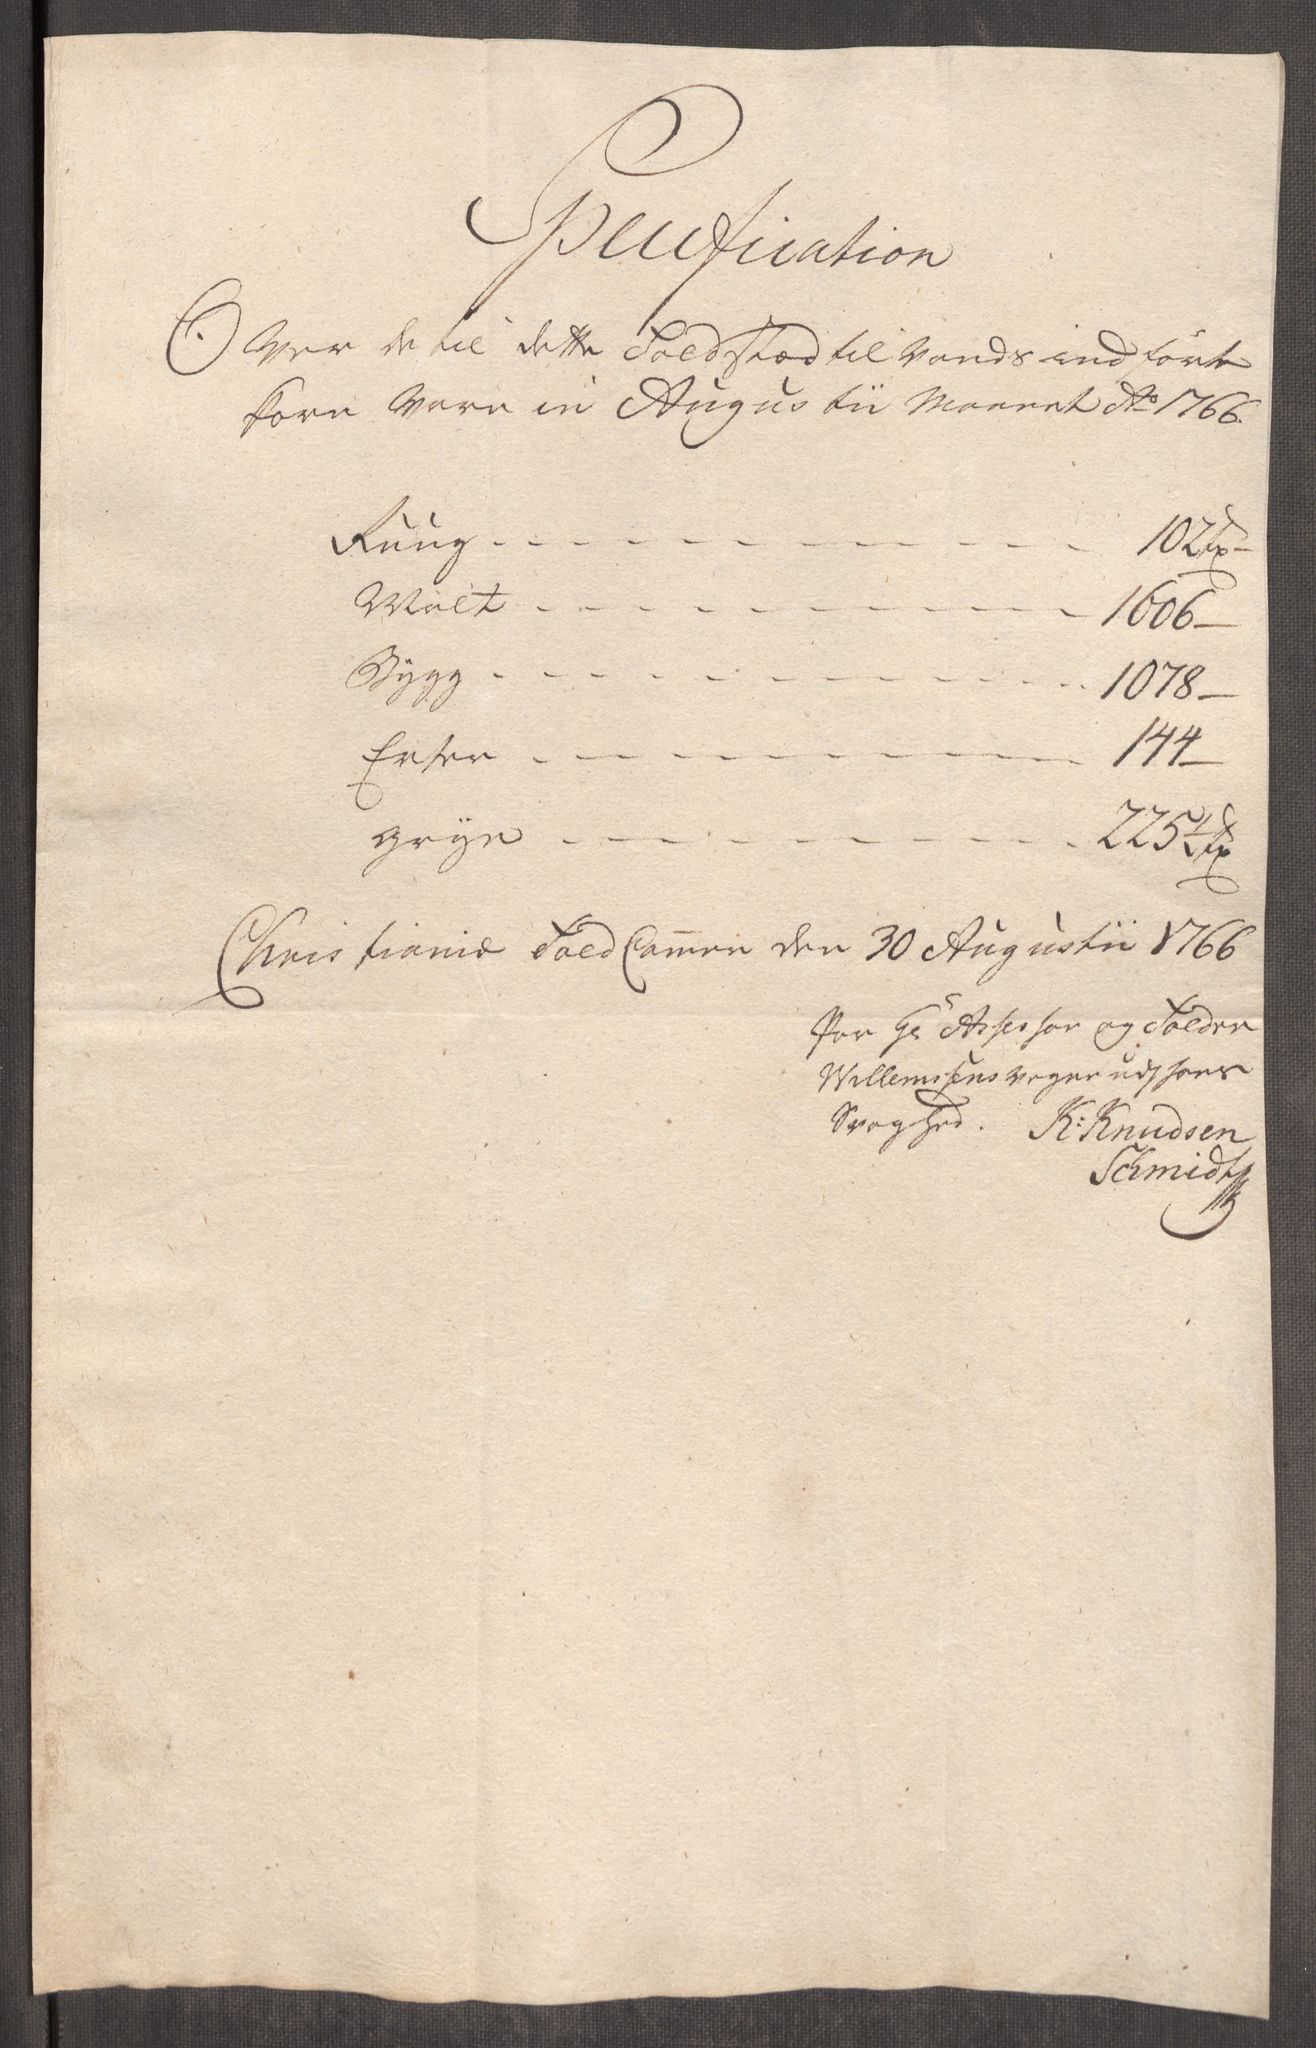 Specification
Over de til dette Told Stæd til Vands ind førte
Korn Vare in Augustii Maanet Ao 1766.
Ruug - - - - - - - - - - 102 Tr
Malt - - - - - - - - - - 1606 —
Bygg - - - - - - - - - - 1078 —
Erter - - - - - - - - - - 144 —
Gryn - - - - - - - - - - 225½ Tr
Christianiæ Told Cam̅er den 30 Augustii 1766
For Hr Assessor og Tolder
Willemssens Vegne udj hans
Svaghed. K: Knudsen
Schmidt